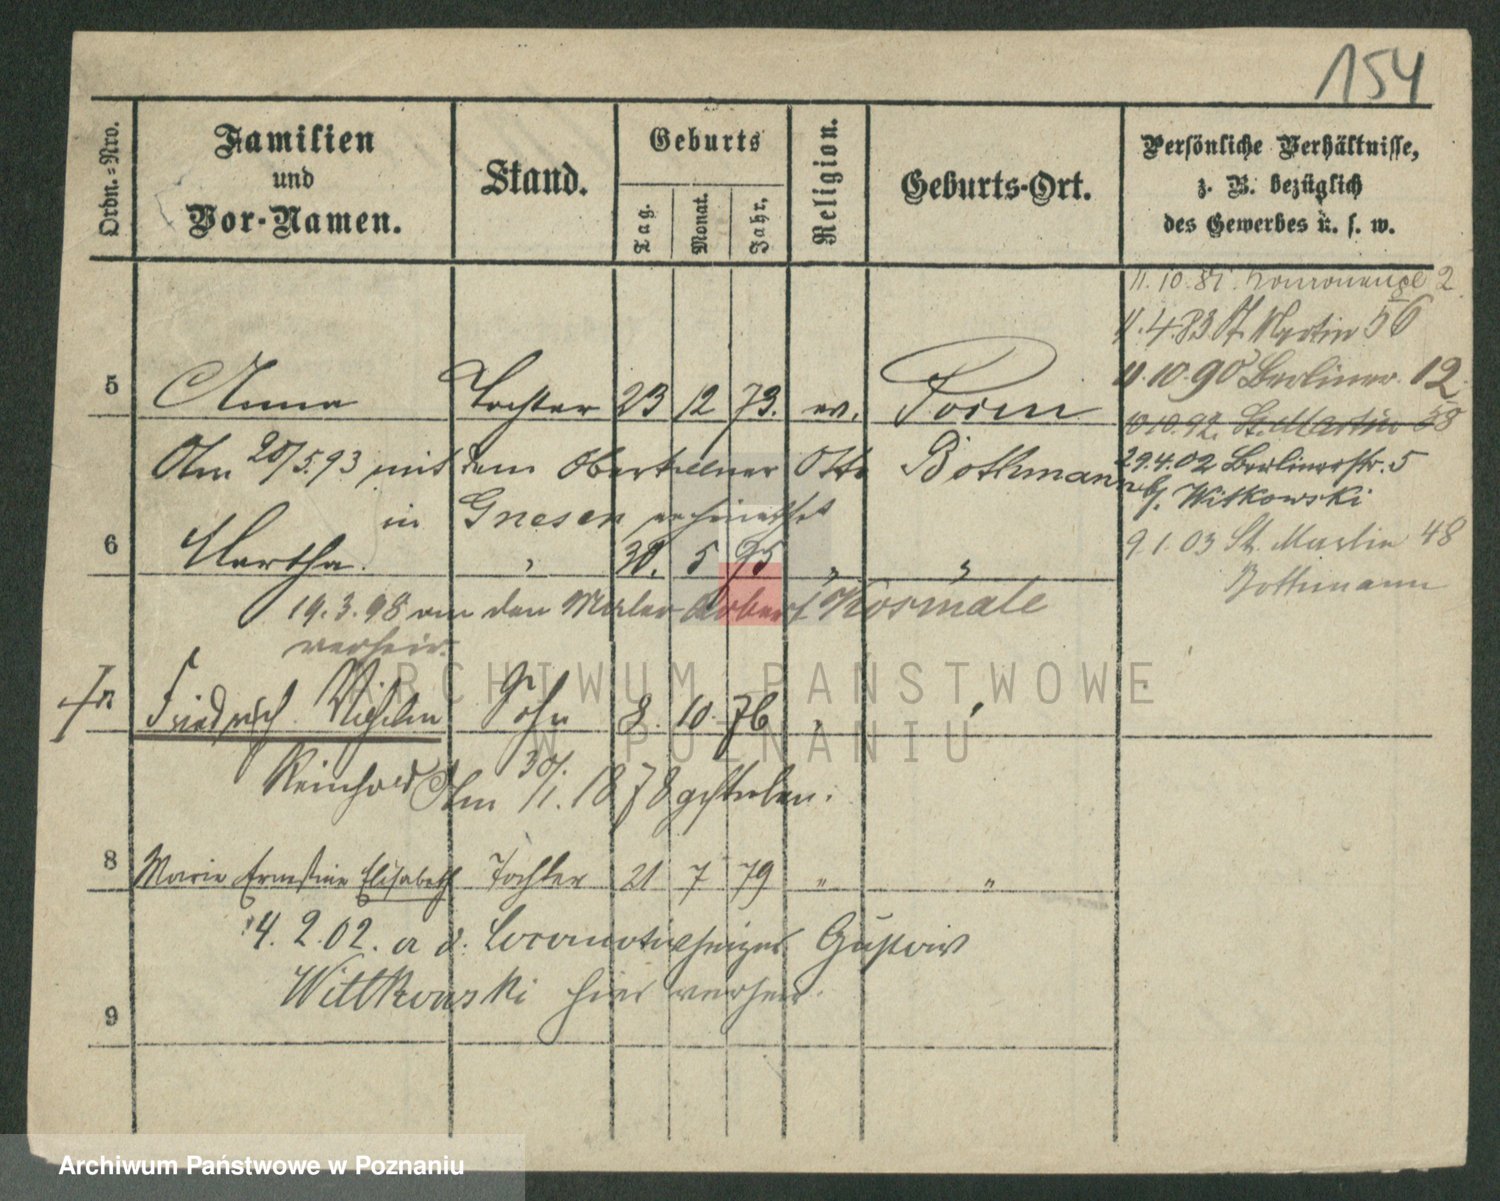 154
Ordn.=Nro.
Familien
und
Vor-Namen.
Stand.
Geburts
Tag.
Monat.
Jahr.
Religion.
Geburts-Ort.
Persönliche Verhältnisse,
z. B. bezüglich
des Gewerbes u. s. w.
11.4.83 St. Martin 56
11.10.90 Berliner 12
10 10.92. St. Martin 58
29.4.02 Berlinerstr. 5
b/. Witkowski
9.1.03 St. Martin 48
Bothmann
5 Anna Tochter 23 12 73. ev. Posen
Am 20/5.93 mit dem Oberkellner Otto Bothmann
in Gnesen verheirathet
6 Martha. " 30. 5 75 " "
19.3.98 an den Maler Robert Kosmale
verheir.
Friedrich Wilhelm Sohn 8. 10. 76 " "
Reinhold Am 30/1. 1878 gestorben.
8 Marie Ernestine Elisabeth Tochter 21 7 79 " "
4. 2.02. a d. Locomotivheizer Gustav
Wittkowski hier verheir.
9
ARCHIWUM PAŃSTWOWE
W POZNANIU
Archiwum Państwowe w Poznaniu